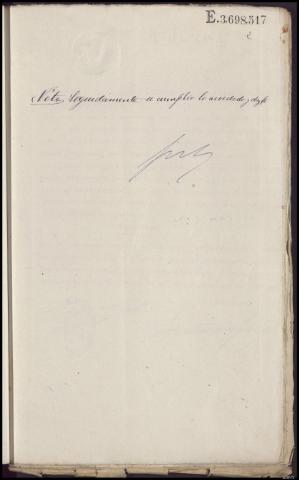 E.3.698.517
Nota, Seguidamente se cumplio lo acordado, doy fe